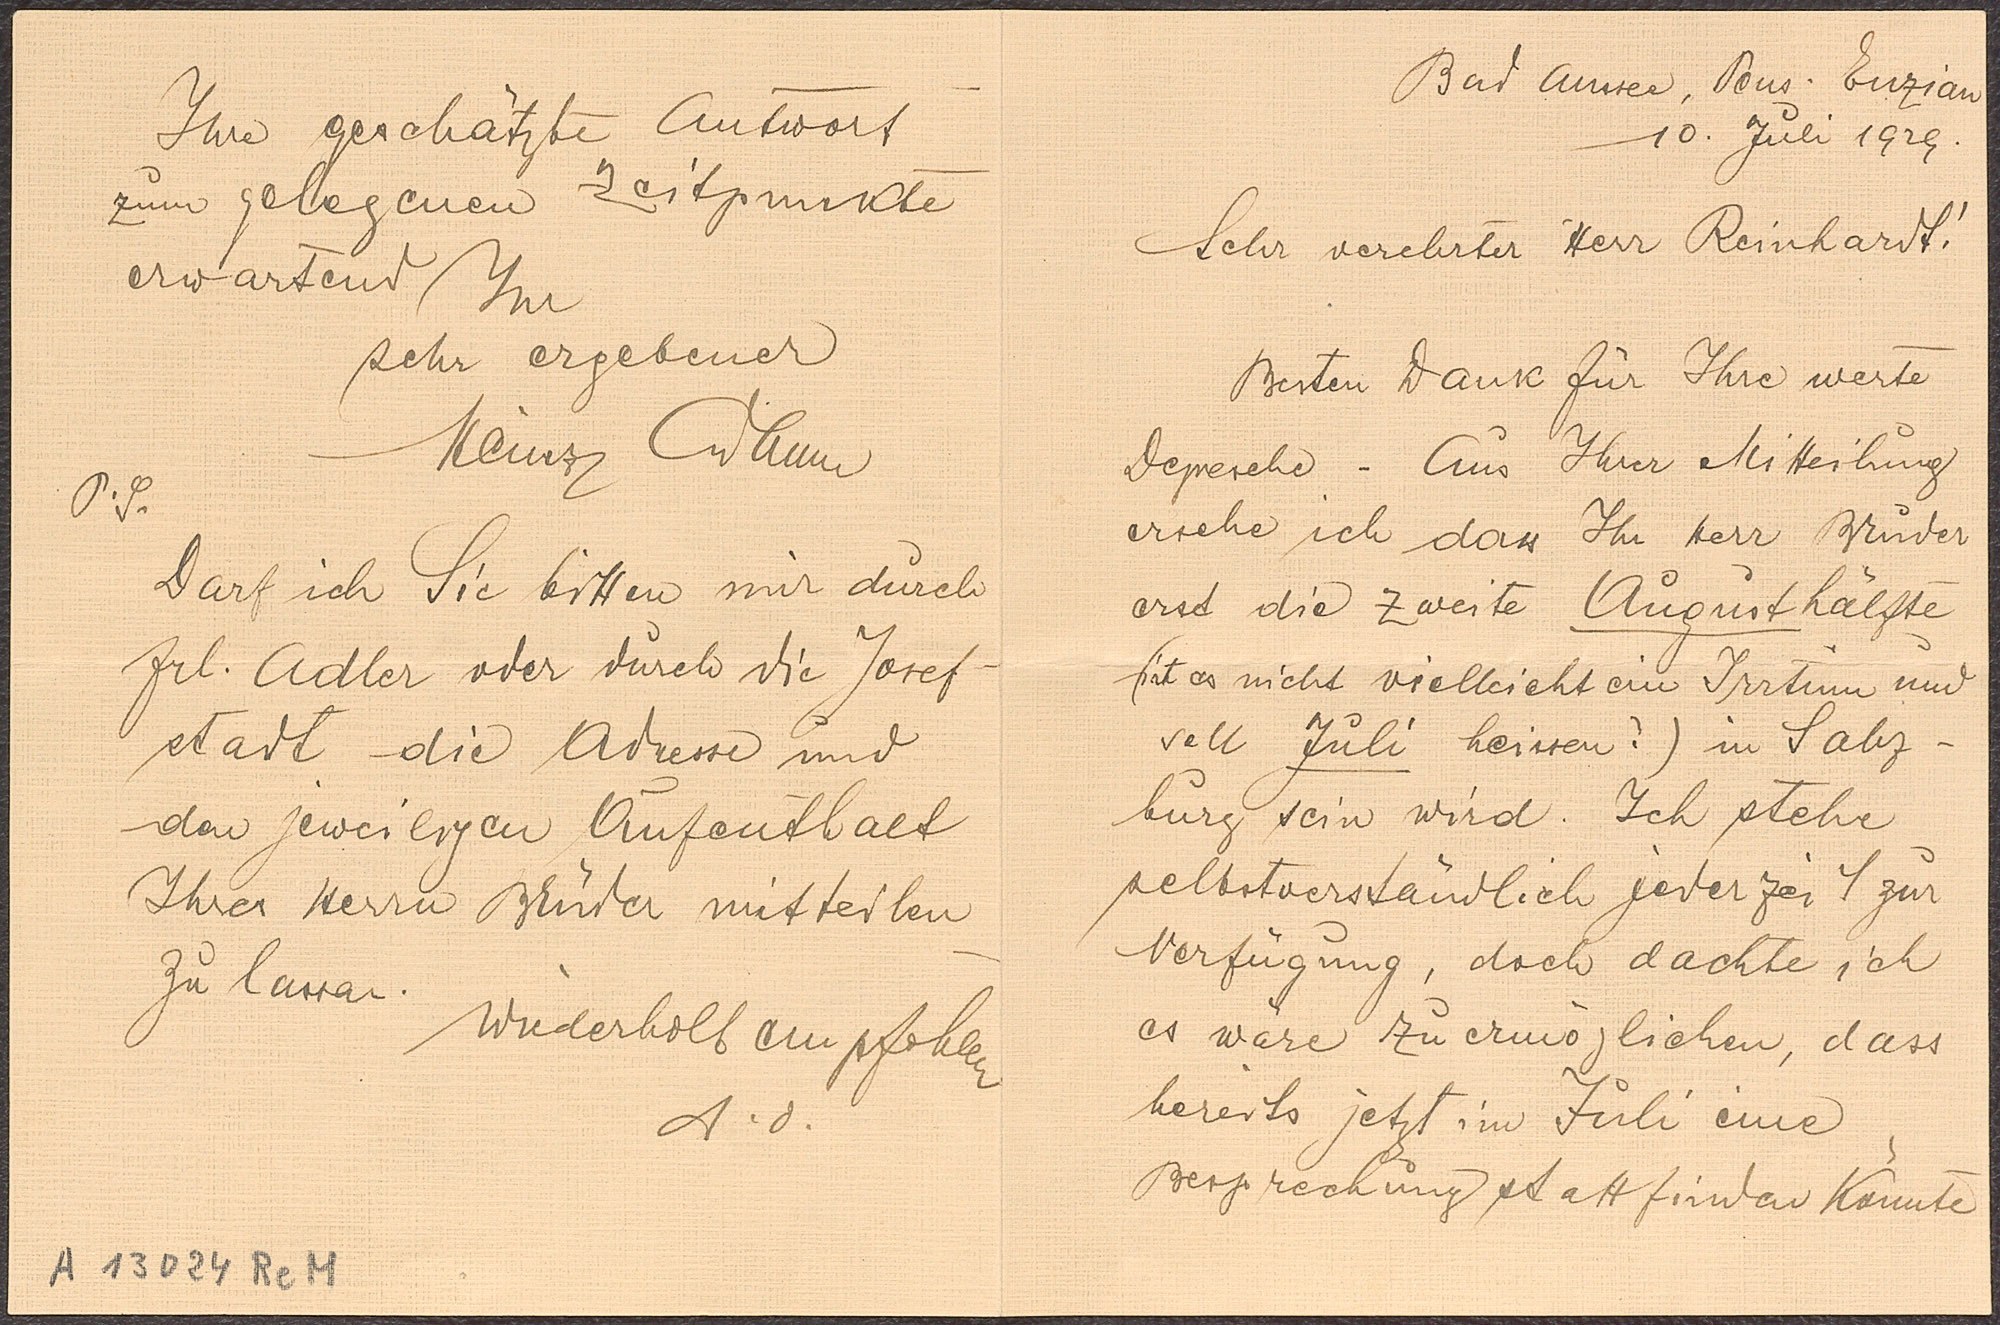 Bad Aussee, Pens. Enzian
10. Juli 1929.
Sehr verehrter Herr Reinhardt!
Besten Dank für Ihre werte
Depesche - Aus Ihrer Mitteilung
ersehe ich dass Ihr Herr Bruder
erst die zweite Augusthälfte
(ist es nicht vielleicht ein Irrtum und
soll Juli heissen?) in Salz-
burg sein wird. Ich stehe
selbstverständlich jederzeit zur
Verfügung, doch dachte ich
es wäre zu ermöglichen, dass
bereits jetzt im Juli eine
Besprechung stattfinden könnte
Ihre geschätzte Antwort
zum gelegenen Zeitpunkte
erwartend Ihr
sehr ergebener
Heinz
P.S.
Darf ich Sie bitten mir durch
Frl. Adler oder durch die Josef-
stadt die Adresse und
den jeweiligen Aufenthalt
Ihres Herrn Bruder mitteilen
zu lassen.
Wiederholt empfohlen
A 13024 ReM